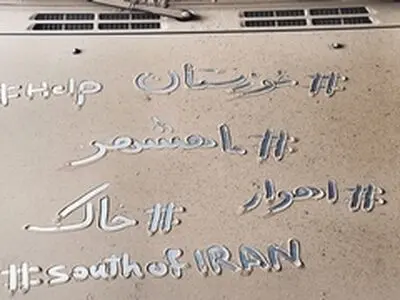 #Help #خوزستان
#ماهشهر
#خاک #اهواز
#South of IRAN